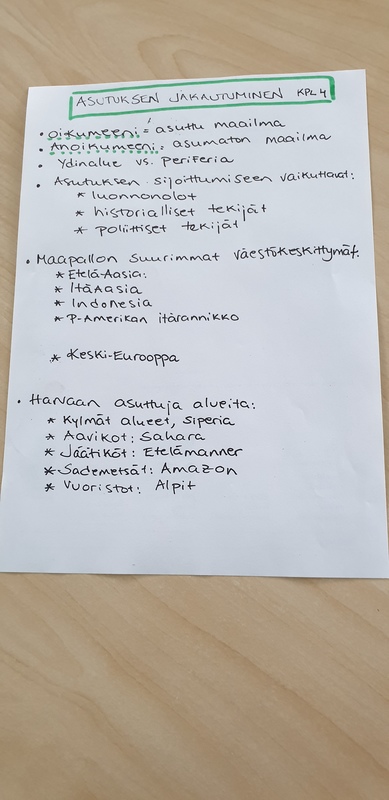 ASUTUKSEN JAKAUTUMINEN KPL 4
• Oikumeeni = asuttu maailma
• Anoikumeeni = asumaton maailma
• Ydinalue vs. Periferia
• Asutuksen sijoittumiseen vaikuttavat:
* luonnonolot
* historialliset tekijät
* poliittiset tekijät
• Maapallon suurimmat väestökeskittymät:
* Etelä-Aasia:
* ItäAasia
* Indonesia
* P-Amerikan itärannikko
* Keski-Eurooppa
• Harvaan asuttuja alueita:
* Kylmät alueet, Siperia
* Aavikot: Sahara
* Jäätiköt: Etelämanner
* Sademetsät: Amazon
* Vuoristot: Alpit